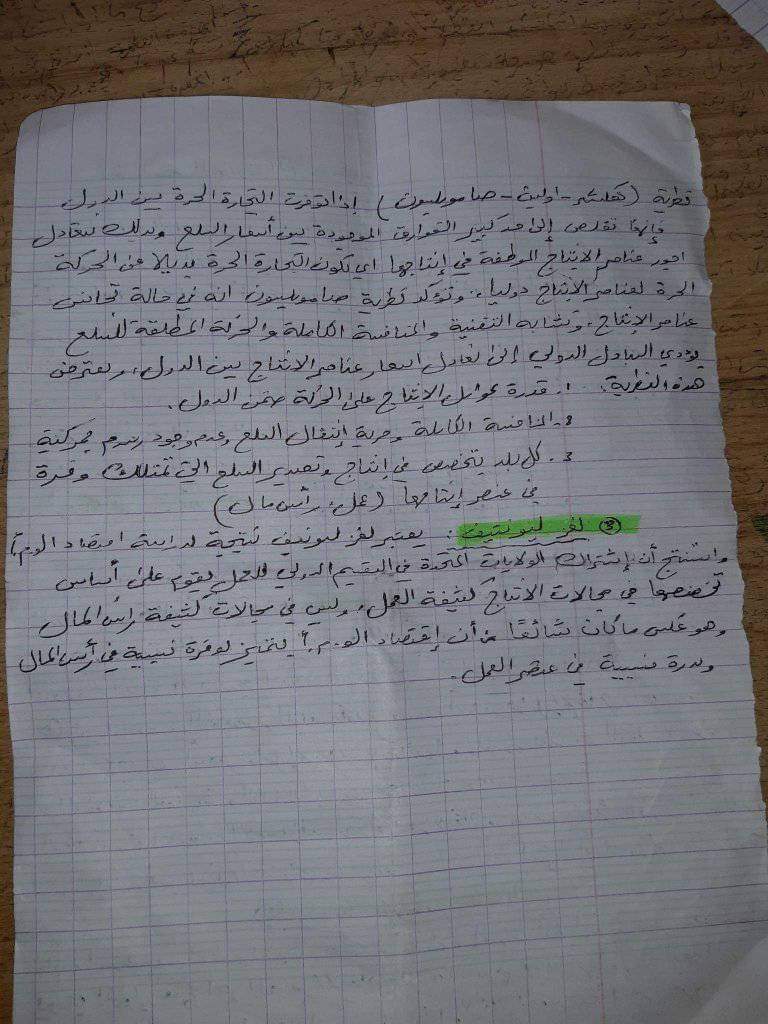 نظرية (هكشر - اولين - صامويلسون) إذا توفرت التجارة الحرة بين الدول
فإنها تقلص إلى حد كبير الفوارق الموجودة بين أسعار السلع وبذلك تتعادل
اجور عناصر الإنتاج الموظفة في إنتاجها اي تكون التجارة الحرة بديلا عن الحركة
الحرة لعناصر الإنتاج دوليا، وتؤكد نظرية صامويلسون انه في حالة تجانس
عناصر الإنتاج، وتشابه التقنية والمنافسة الكاملة والحركة المطلقة للسلع
يؤدي التبادل الدولي إلى تعادل اسعار عناصر الإنتاج بين الدول، وتعترض
هذه النظرية: 1. قدرة عوامل الإنتاج على الحركة ضمن الدول.
2. المنافسة الكاملة وحرية إنتقال السلع وعدم وجود رسوم جمركية
3. كل بلد يتخصص في إنتاج وتصدير السلع التي تمتلك وفرة
في عنصر إنتاجها (عمل، رأس مال)
③ لغز ليونتيف: يعتبر لغز ليونتيف نتيجة لدراسة اقتصاد الو.م.أ
واستنتج أن إشتراك الولايات المتحدة في التقسيم الدولي للعمل يقوم على أساس
تخصصها في مجالات الانتاج كثيفة العمل، وليس في مجالات كثيفة رأس المال
وهو عكس ما كان شائعًا من أن إقتصاد الو.م.أ يتميز لوفرة نسبية في رأس المال
وندرة نسبية في عنصر العمل.